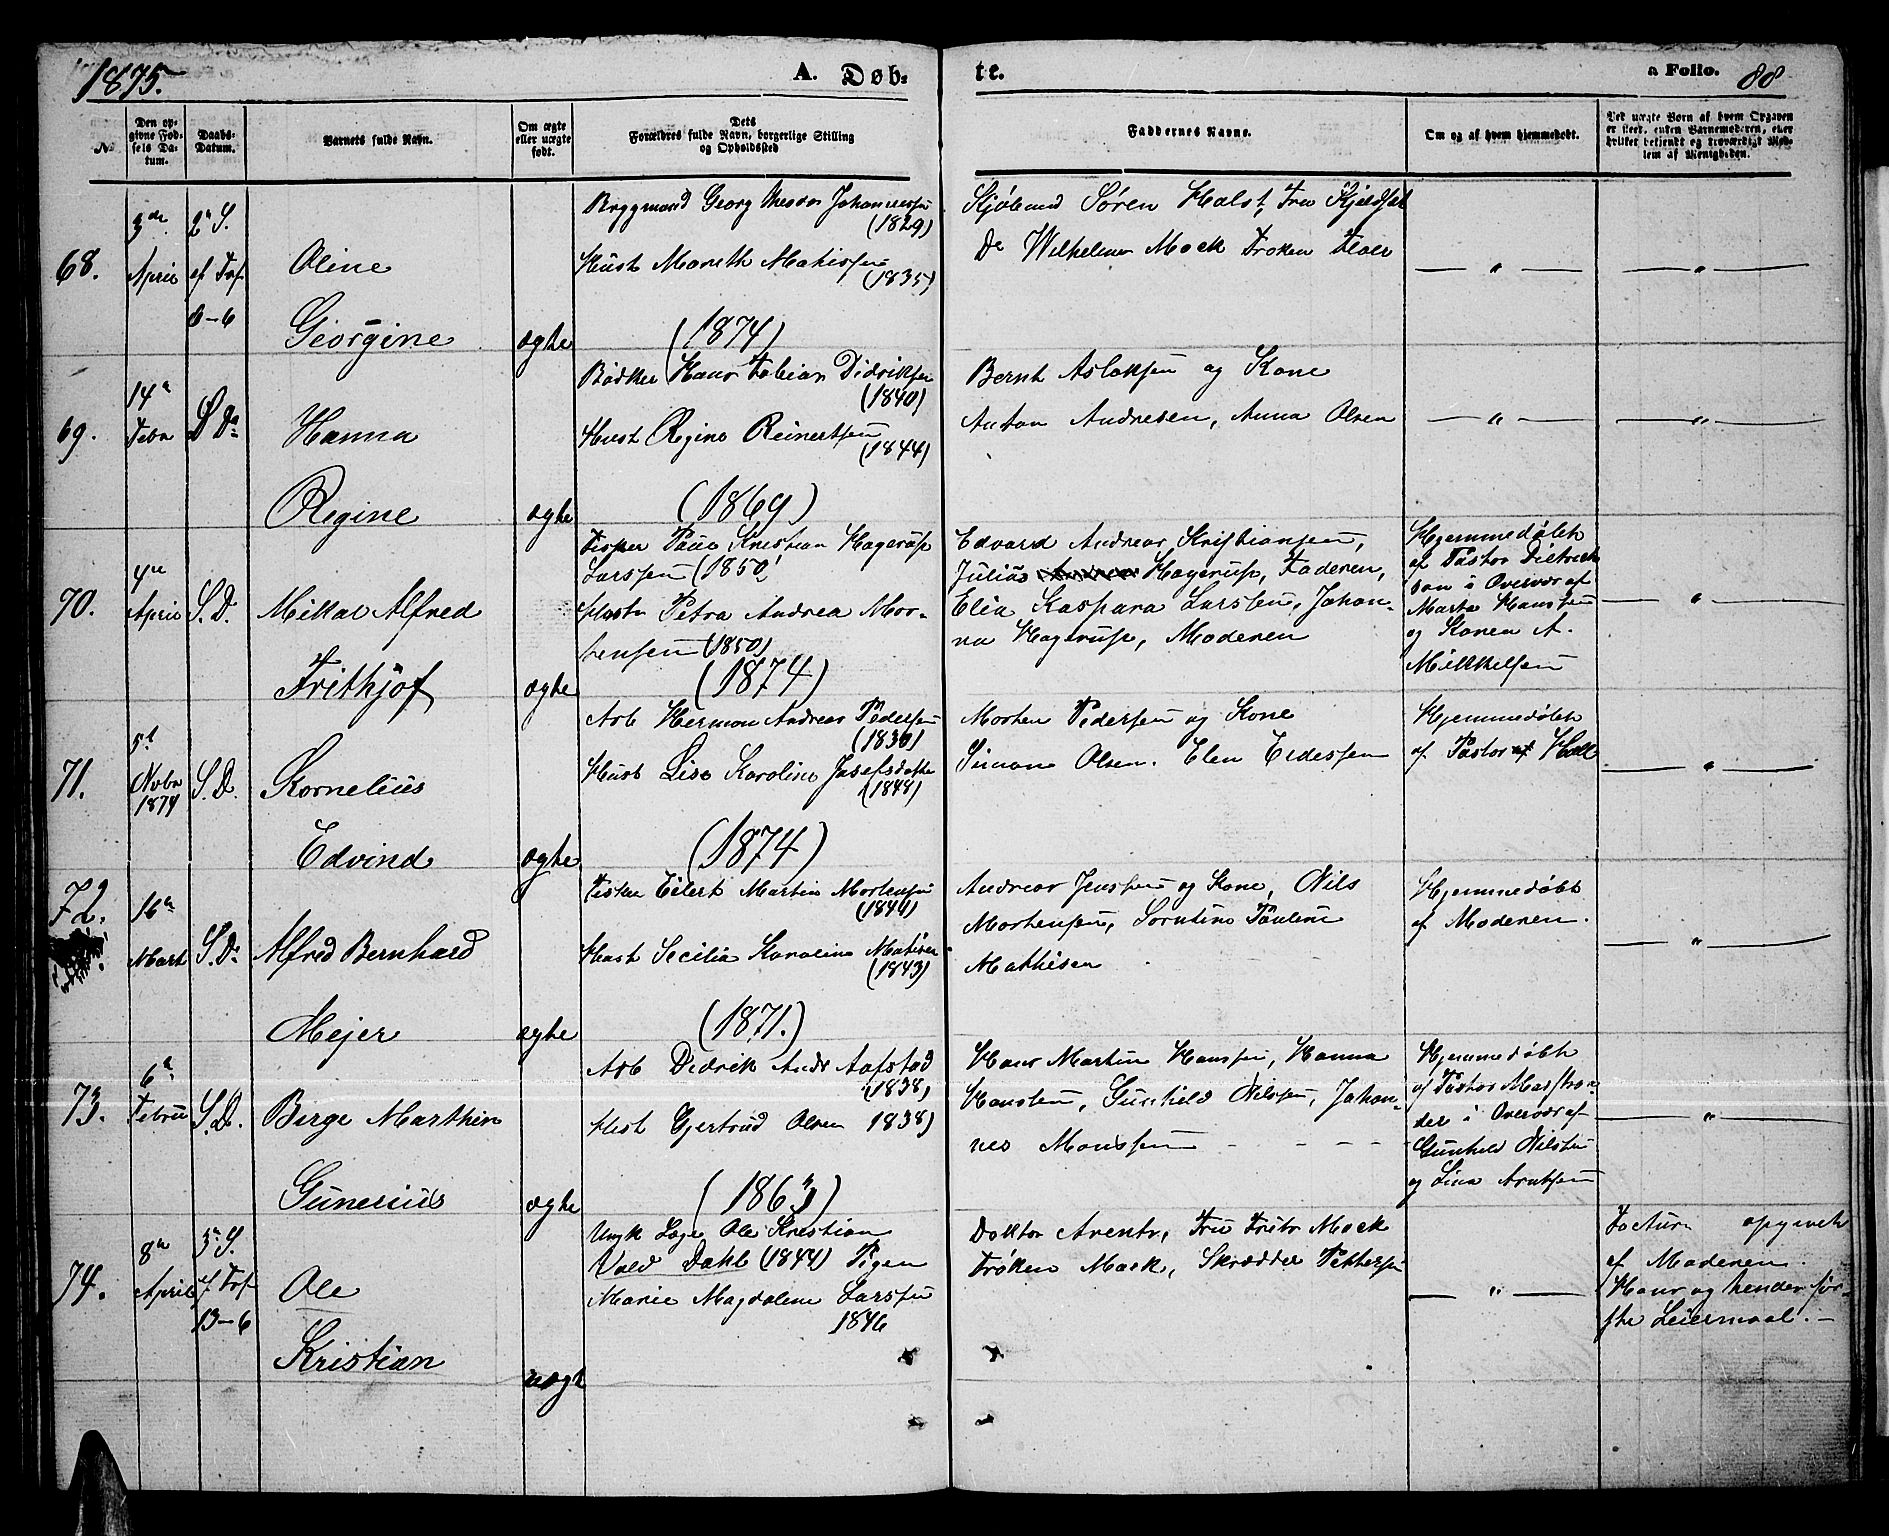 1875.
A. Døb-
te.
a Folio. 88
№
Den opgivne Fødsels Datum.
Daabs-Datum.
Barnets fulde Navn.
Om ægte eller uægte født.
Dets Forældres fulde Navn, borgerlige Stilling og Opholdssted
Faddernes Navne.
Om og af hvem hjemmedøbt.
Ved uægte Børn af hvem Opgaven er skeet, enten Barnemoderen, eller hvilket bekjendt og troværdigt Medlem af Menigheden.
68.
3die April
2 S. ef Trf 6-6
Oline
Georgine
ægte
Georg Johannessen
(1829)
Hust Mareth Mathissen
(1835)
(1874)
Søren Holst, Fru Kjeldset
Do Wilhelmine Mack Frøken
— " —
— " —
69.
14de Febr
S Da
Hanna
Regine
ægte
Bødker Hans Tobias Didriksen
(1840)
Hust Regine Reinertsen
(1844)
(1869)
Bernt Aslaksen og Kone
Anton Andresen, Anna Olsen
— " —
— " —
70.
4de April
S. D.
Mikal Alfred
Frithjof
ægte
Fisker Paul Kristian Hagerup
Larssen (1850)
Hustr Petra Andrea Mor-
tensen (1850)
(1874)
Edvard Andreas Kristiansen,
Julius Hagerup, Faderen,
Elia Kaspara Larsen, Johan-
na Hagerup, Moderen
Hjemmedøbt
af Pastor Dietrich
son i Overvær af
Marta Hansen
og Konen A.
Mikkelsen
— " —
71.
5t Novbr 1874
S. D.
Kornelius
Edvind
ægte
Arb Herman Andreas Pedersen
(1830)
Hust Lise Karoline Josefsdatter
(1848)
(1874)
Morten Pedersen og Kone
Simon Olsen. Elen Eidessen
Hjemmedøbt
af Pastor Hall
— " —
72.
16de Mart
S. Da
Alfred Bernhard
Mejer
ægte
Fisker Eilert Martin Mortensen
(1844)
Hust Secilia Karoline
(1843)
(1871.)
Andreas Jenssen og Kone, Nils
Mortensen, Pauline
Mathisen
Hjemmedøbt
af Moderen.
— " —
73.
6te Febru
S. D.
Birge Marthin
Gunerius
ægte
Arb Didrik Andr Aafstad
(1838)
Hust Gjertrud Olsen 1838)
(1863)
Hans Martin Hanssen, Hanna
Hansen, Gunhild Nilsen, Johan-
nes Monssen
Hjemmedøbt
af Pastor Marstran-
der i Overvær af
Gunhild Nilsen
og Lina Arntsen
— " —
74.
8de April
3 S. ef Trf 13-6
Ole
Kristian
uægt
Ungk Læge Ole Kristian
Vold Dahl (1844) Pigen
Marie Magdalene Larssen
1846
Doktor Arentz, Fru Mack
Frøken Mack, Skrædder Pettersen
— " —
opgivet
af Moderen.
Hans og hendes før-
ste Leiermaal. —